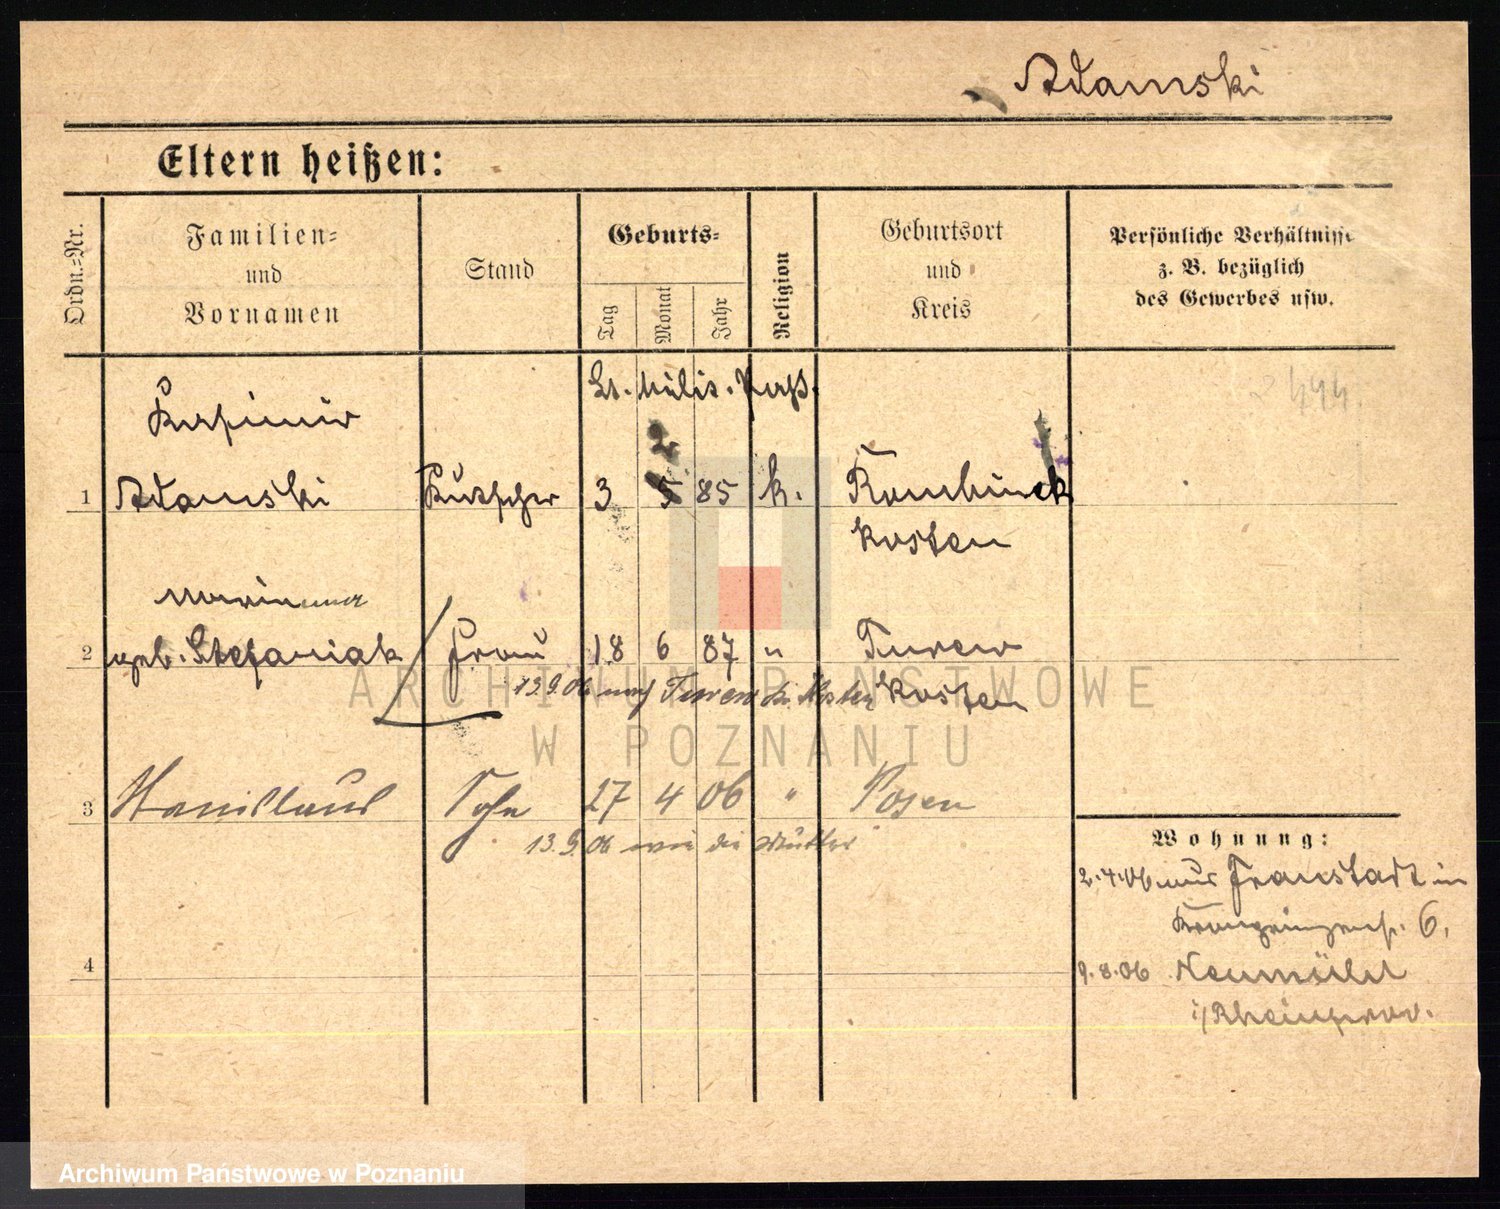 Adamski
Eltern heißen:
Ordn.-Nr.
Familien-
und
Vornamen
Stand
Geburts-
Tag
Monat
Jahr
Religion
Geburtsort
und
Kreis
Persönliche Verhältnisse
z. B. bezüglich
des Gewerbes usw.
494
Lt. Milit. Paß.
Kasimir
2
1 Adamski Kutscher 3 5 85 k. Rombinek
Kosten
Marianna
2 geb. Stefaniak Frau 18 6 87 " Turew
13.9.06 nach Turew Kr. Kosten Kosten
3 Stanislaus Sohn 27 4 06 " Posen
13.9.06 wie die Mutter
4
Wohnung:
2.4.06 aus Fraustadt in
Kronprinzenstr. 6.
9.8.06 Neumühl
i/Rheinprov.
ARCHIWUM PAŃSTWOWE
W POZNANIU
Archiwum Państwowe w Poznaniu